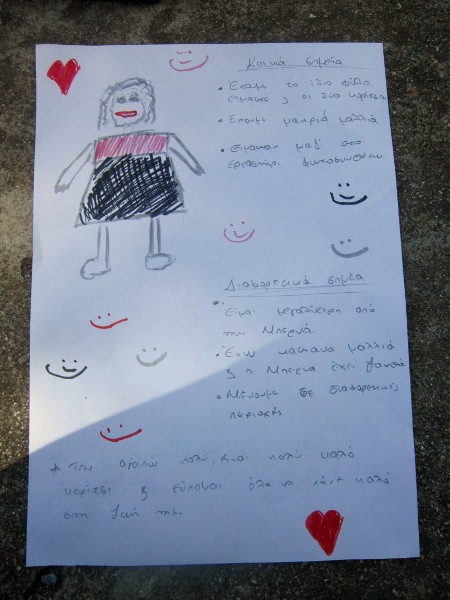 Κοινά σημεία
• Έχουμε το ίδιο φύλο
είμαστε & οι δύο κορίτσια
• Έχουμε μακριά μαλλιά
• Είμασταν μαζί στο
εργαστήρι φωτοσύνθεσης
Διαφορετικά σημεία
• Είμαι μεγαλύτερη από
την Μπέρνα
• Έχω καστανά μαλλιά
& η Μπέρνα έχει ξανθά
• Μένουμε σε διαφορετικές
περιοχές
* Την αγαπώ πολύ, είναι πολύ καλό
κορίτσι & εύχομαι όλα να πάνε καλά
στη ζωή της.